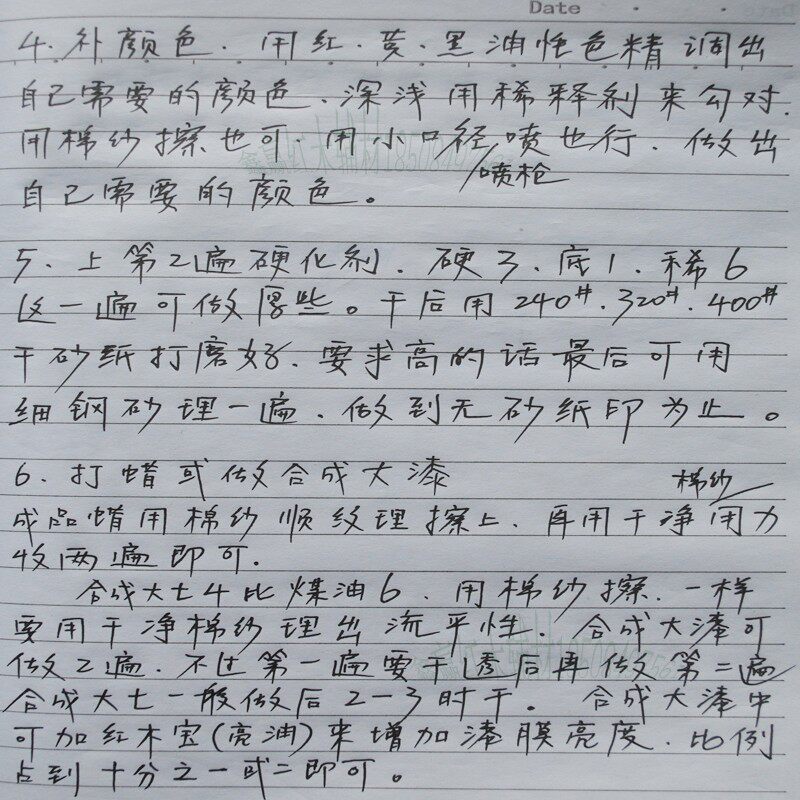 Date
4. 补颜色. 用红. 黄. 黑油性色精调出
自己需要的颜色. 深浅用稀释剂来勾对.
用棉纱擦也可. 用小口径喷也行. 做出
喷枪
自己需要的颜色。
5、上第2遍硬化剂. 硬3、底1. 稀6
这一遍可做厚些。干后用240#. 320#. 400#
干砂纸打磨好. 要求高的话最后可用
细钢砂理一遍. 做到无砂纸印为止。
6. 打蜡或做合成大漆
棉纱
成品蜡用棉纱顺纹理擦上. 再用干净用力
收两遍即可.
合成大七4比煤油6. 用棉纱擦. 一样
要用干净棉纱理出流平性. 合成大漆可
做2遍. 不过第一遍要干透后再做第二遍
合成大七一般做后2-3时干. 合成大漆中
可加红木宝(亮油)来增加漆膜亮度. 比例
占到十分之一或二即可。